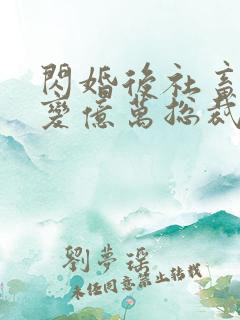 閃婚後社畜
變億萬總裁
劉夢瑤
未經同意禁止轉載